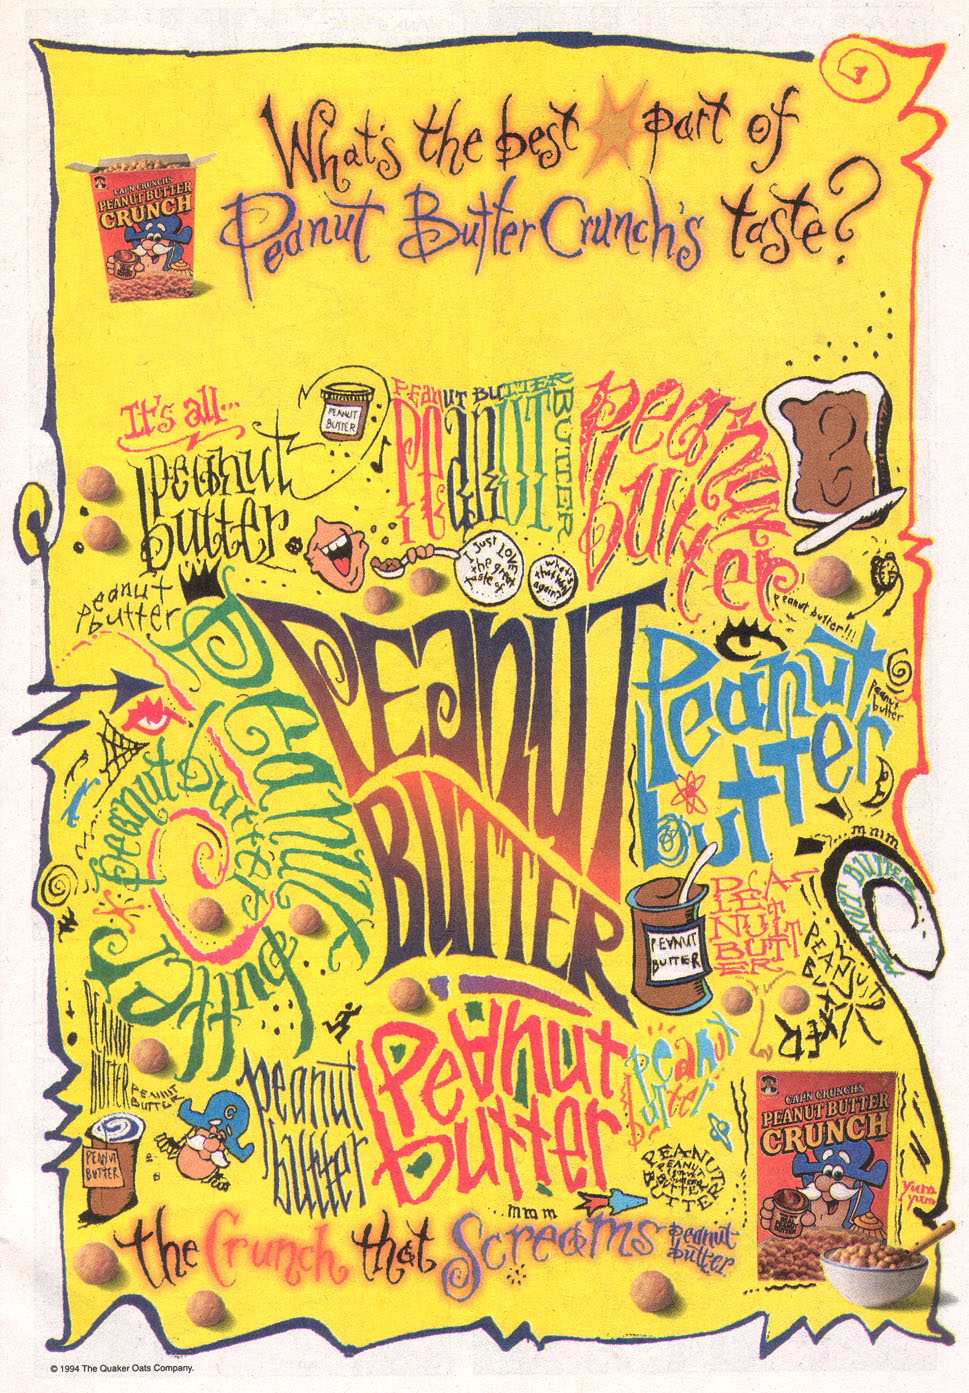 What's the best part of
Peanut Butter Crunch's taste?
CAP'N CRUNCH'S
PEANUT BUTTER
CRUNCH
It's all...
peanut
butter
PEANUT
BUTTER
PEANUT BUTTER
PEANUT
BUTTER
peanut
butter
I just LOVE
the great
taste of
what's
that word
again?
peanut
butter
peanut butter!!!
PEANUT
BUTTER
Peanut
butter
peanut
butter
Peanut
butter
peanut butter
mmm
PEANUT BUTTER
PEANUT
BUTTER
PEA
NUT
BUTT
ER
PEANUT
BUTTER
PEANUT
BUTTER
PEANUT
BUTTER
C
PEANUT
BUTTER
peanut
butter
Peanut
butter
peanut
butter
PEANUT
BUTTER
mmm
CAP'N CRUNCH'S
PEANUT BUTTER
CRUNCH
yum
yum
the Crunch that Screams peanut
butter
© 1994 The Quaker Oats Company.